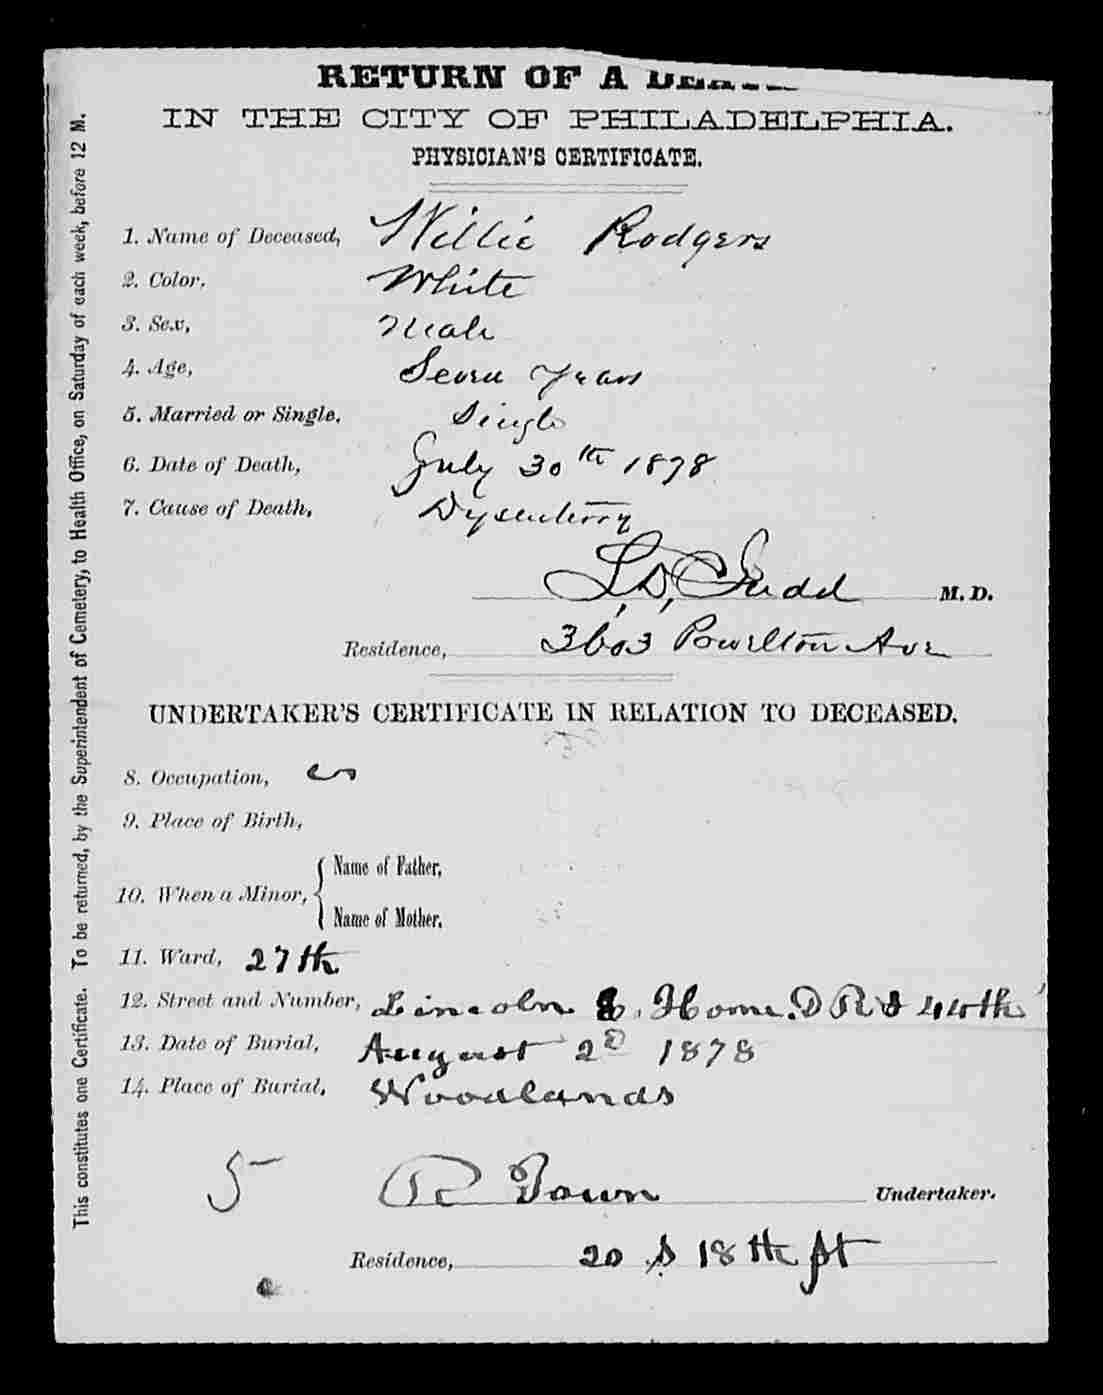 RETURN OF A DEATH
IN THE CITY OF PHILADELPHIA.
PHYSICIAN'S CERTIFICATE.
1. Name of Deceased, Willie Rodgers
2. Color, White
3. Sex, Male
4. Age, Seven Years
5. Married or Single, Single
6. Date of Death, July 30th 1878
7. Cause of Death, Dysentery
Judd M. D.
Residence, 3603 Powelton Ave
UNDERTAKER'S CERTIFICATE IN RELATION TO DECEASED.
8. Occupation,
9. Place of Birth,
10. When a Minor, { Name of Father,
Name of Mother,
11. Ward, 27th
12. Street and Number, Lincoln Home. 44th
13. Date of Burial, August 2d 1878
14. Place of Burial, Woodlands
5 R Town Undertaker.
Residence, 20 S 18th St
This constitutes one Certificate. To be returned, by the Superintendent of Cemetery, to Health Office, on Saturday of each week, before 12 M.